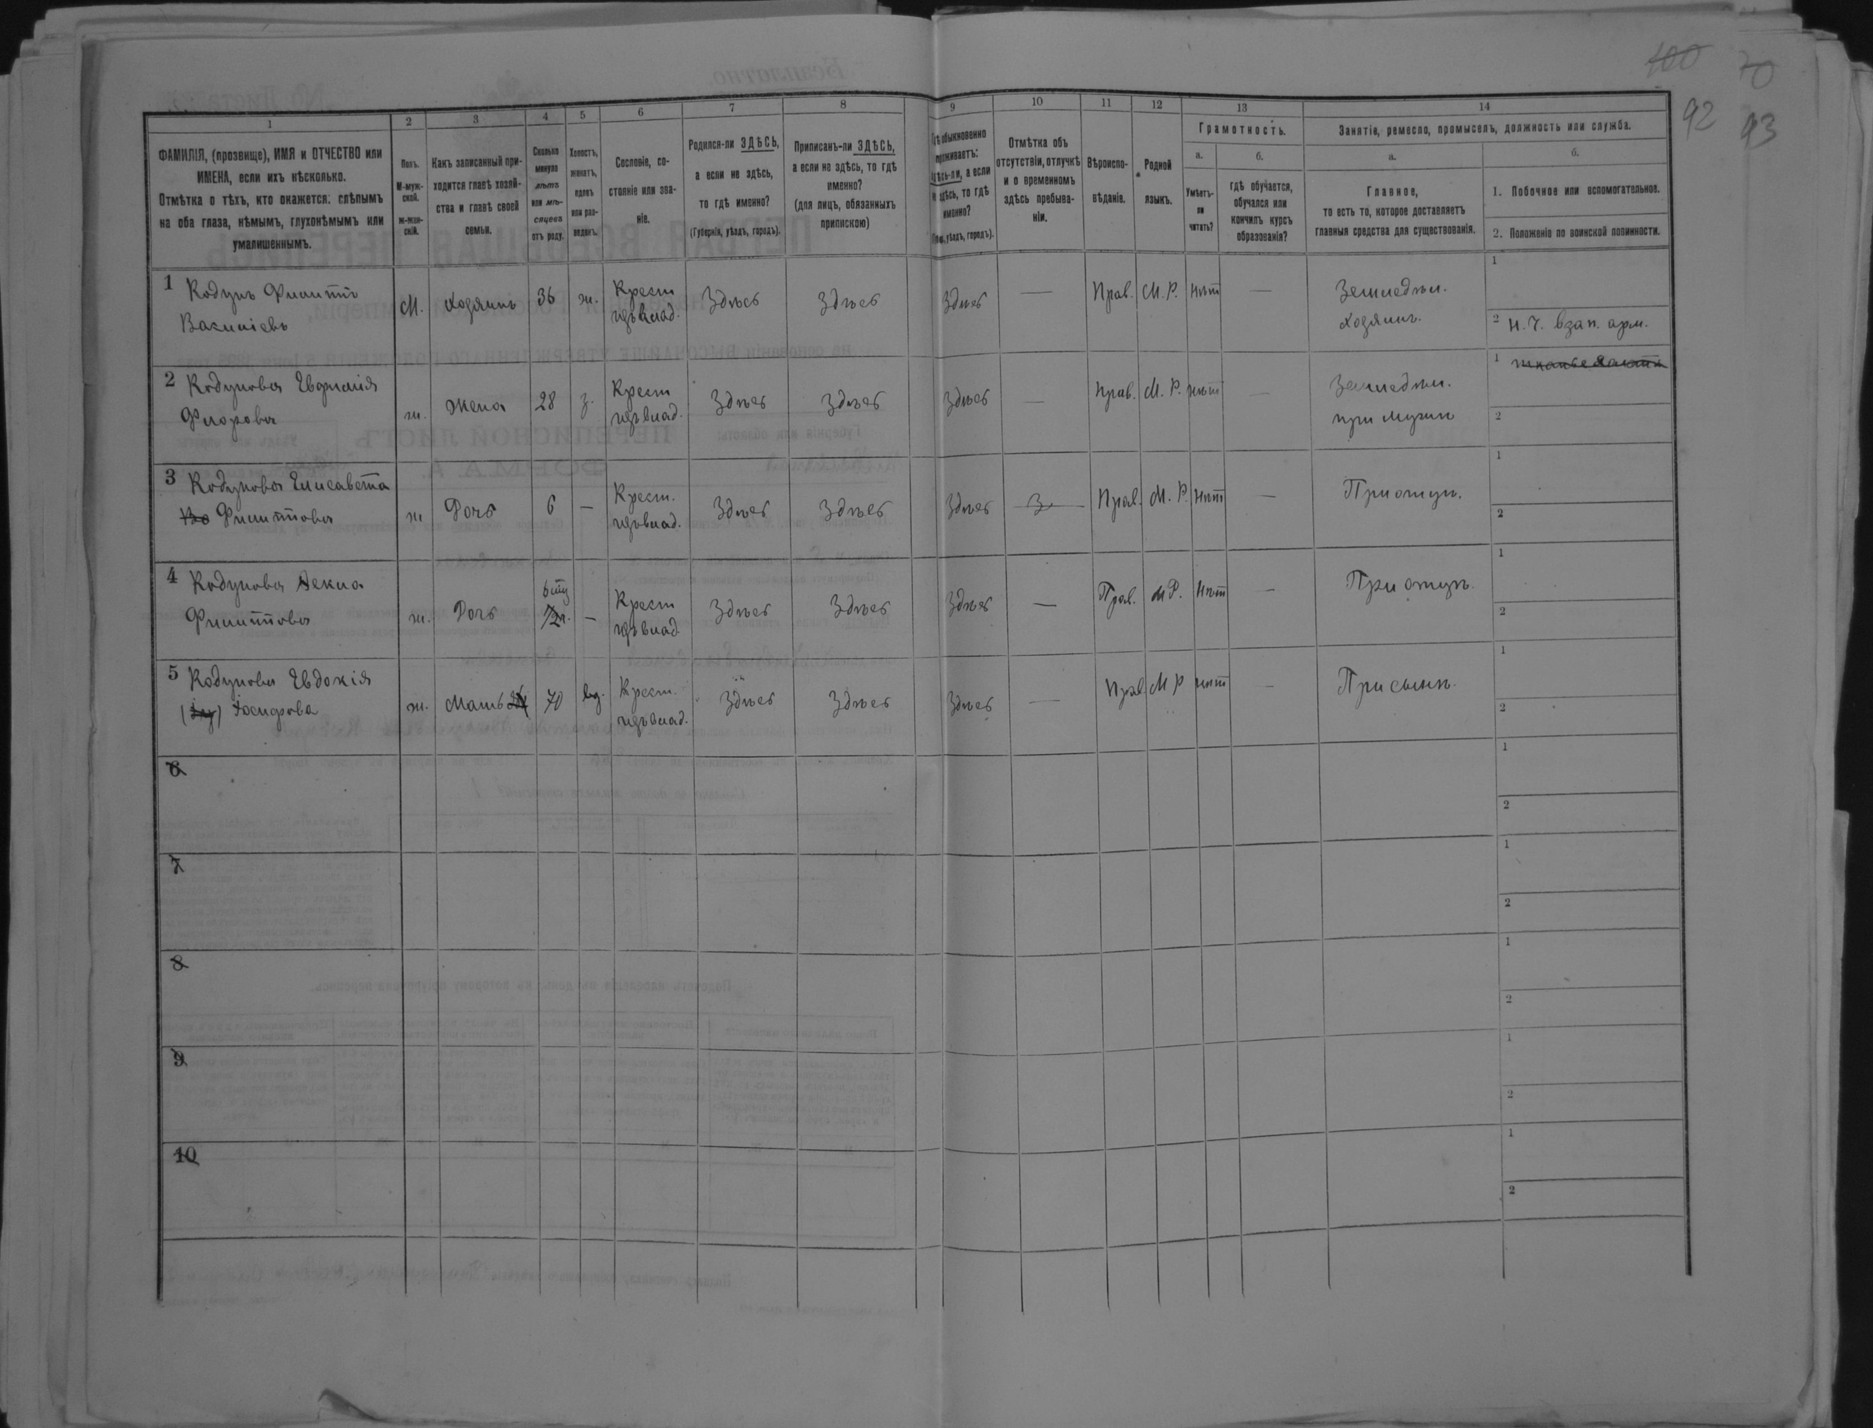 100 70
92 93
1 2 3 4 5 6 7 8 9 10 11 12 13 14
ФАМИЛІЯ, (прозвище), ИМЯ и ОТЧЕСТВО или
ИМЕНА, если ихъ нѣсколько.
Отмѣтка о тѣхъ, кто окажется: слѣпымъ
на оба глаза, нѣмымъ, глухонѣмымъ или
умалишеннымъ.
Полъ.
М-муж-
ской.
ж-жен-
скій.
Какъ записанный при-
ходится главѣ хозяй-
ства и главѣ своей
семьи.
Сколько
минуло
лѣтъ
или мѣ-
сяцевъ
отъ роду.
Холостъ,
женатъ,
вдовъ
или раз-
веденъ.
Сословіе, со-
стояніе или зва-
ніе.
Родился-ли ЗДѢСЬ,
а если не здѣсь,
то гдѣ именно?
(Губернія, уѣздъ, городъ).
Приписанъ-ли ЗДѢСЬ,
а если не здѣсь, то гдѣ
именно?
(для лицъ, обязанныхъ
припискою)
обыкновенно
проживаетъ:
здѣсь-ли, а если
не здѣсь, то гдѣ
именно?
уѣздъ, городъ).
Отмѣтка объ
отсутствіи, отлучкѣ
и о временномъ
здѣсь пребыва-
ніи.
Вѣроиспо-
вѣданіе.
Родной
языкъ.
Грамотность.
а. б.
Умѣетъ-
ли
читать?
гдѣ обучается,
обучался или
кончилъ курсъ
образованія?
Занятіе, ремесло, промыселъ, должность или служба.
а. б.
Главное,
то есть то, которое доставляетъ
главныя средства для существованія.
1. Побочное или вспомогательное.
2. Положеніе по воинской повинности.
1 Кодунъ Филиппъ М. хозяинъ 36 ж. Крест Здѣсь Здѣсь Здѣсь — Прав. М. Р. нѣт — Земледѣл. 1
Василіевъ изъ влад. хозяинъ. 2 н. ч. в зап. арм.
2 Кодунова Евфимія ж. Жена 28 з. Крест Здѣсь Здѣсь Здѣсь — Прав. М. Р. нѣт — Земледѣл. 1
Флорова изъ влад. при мужѣ 2
3 Кодунова Елисавета ж Дочь 6 — Крест. Здѣсь Здѣсь Здѣсь Прав. М. Р. нѣт — При отцѣ. 1
Филиппова изъ влад. 2
4 Кодунова Фекла ж. Дочь — Крест Здѣсь Здѣсь Здѣсь — Прав. М Р. нѣт — При отцѣ. 1
Филиппова изъ влад 2
5 Кодунова Евдокія ж. Мать 70 вд. Крест. Здѣсь Здѣсь Здѣсь — Прав М Р нѣт — При сынѣ. 1
Іосифова изъ влад. 2
6 1
2
7 1
2
8 1
2
9 1
2
10 1
2